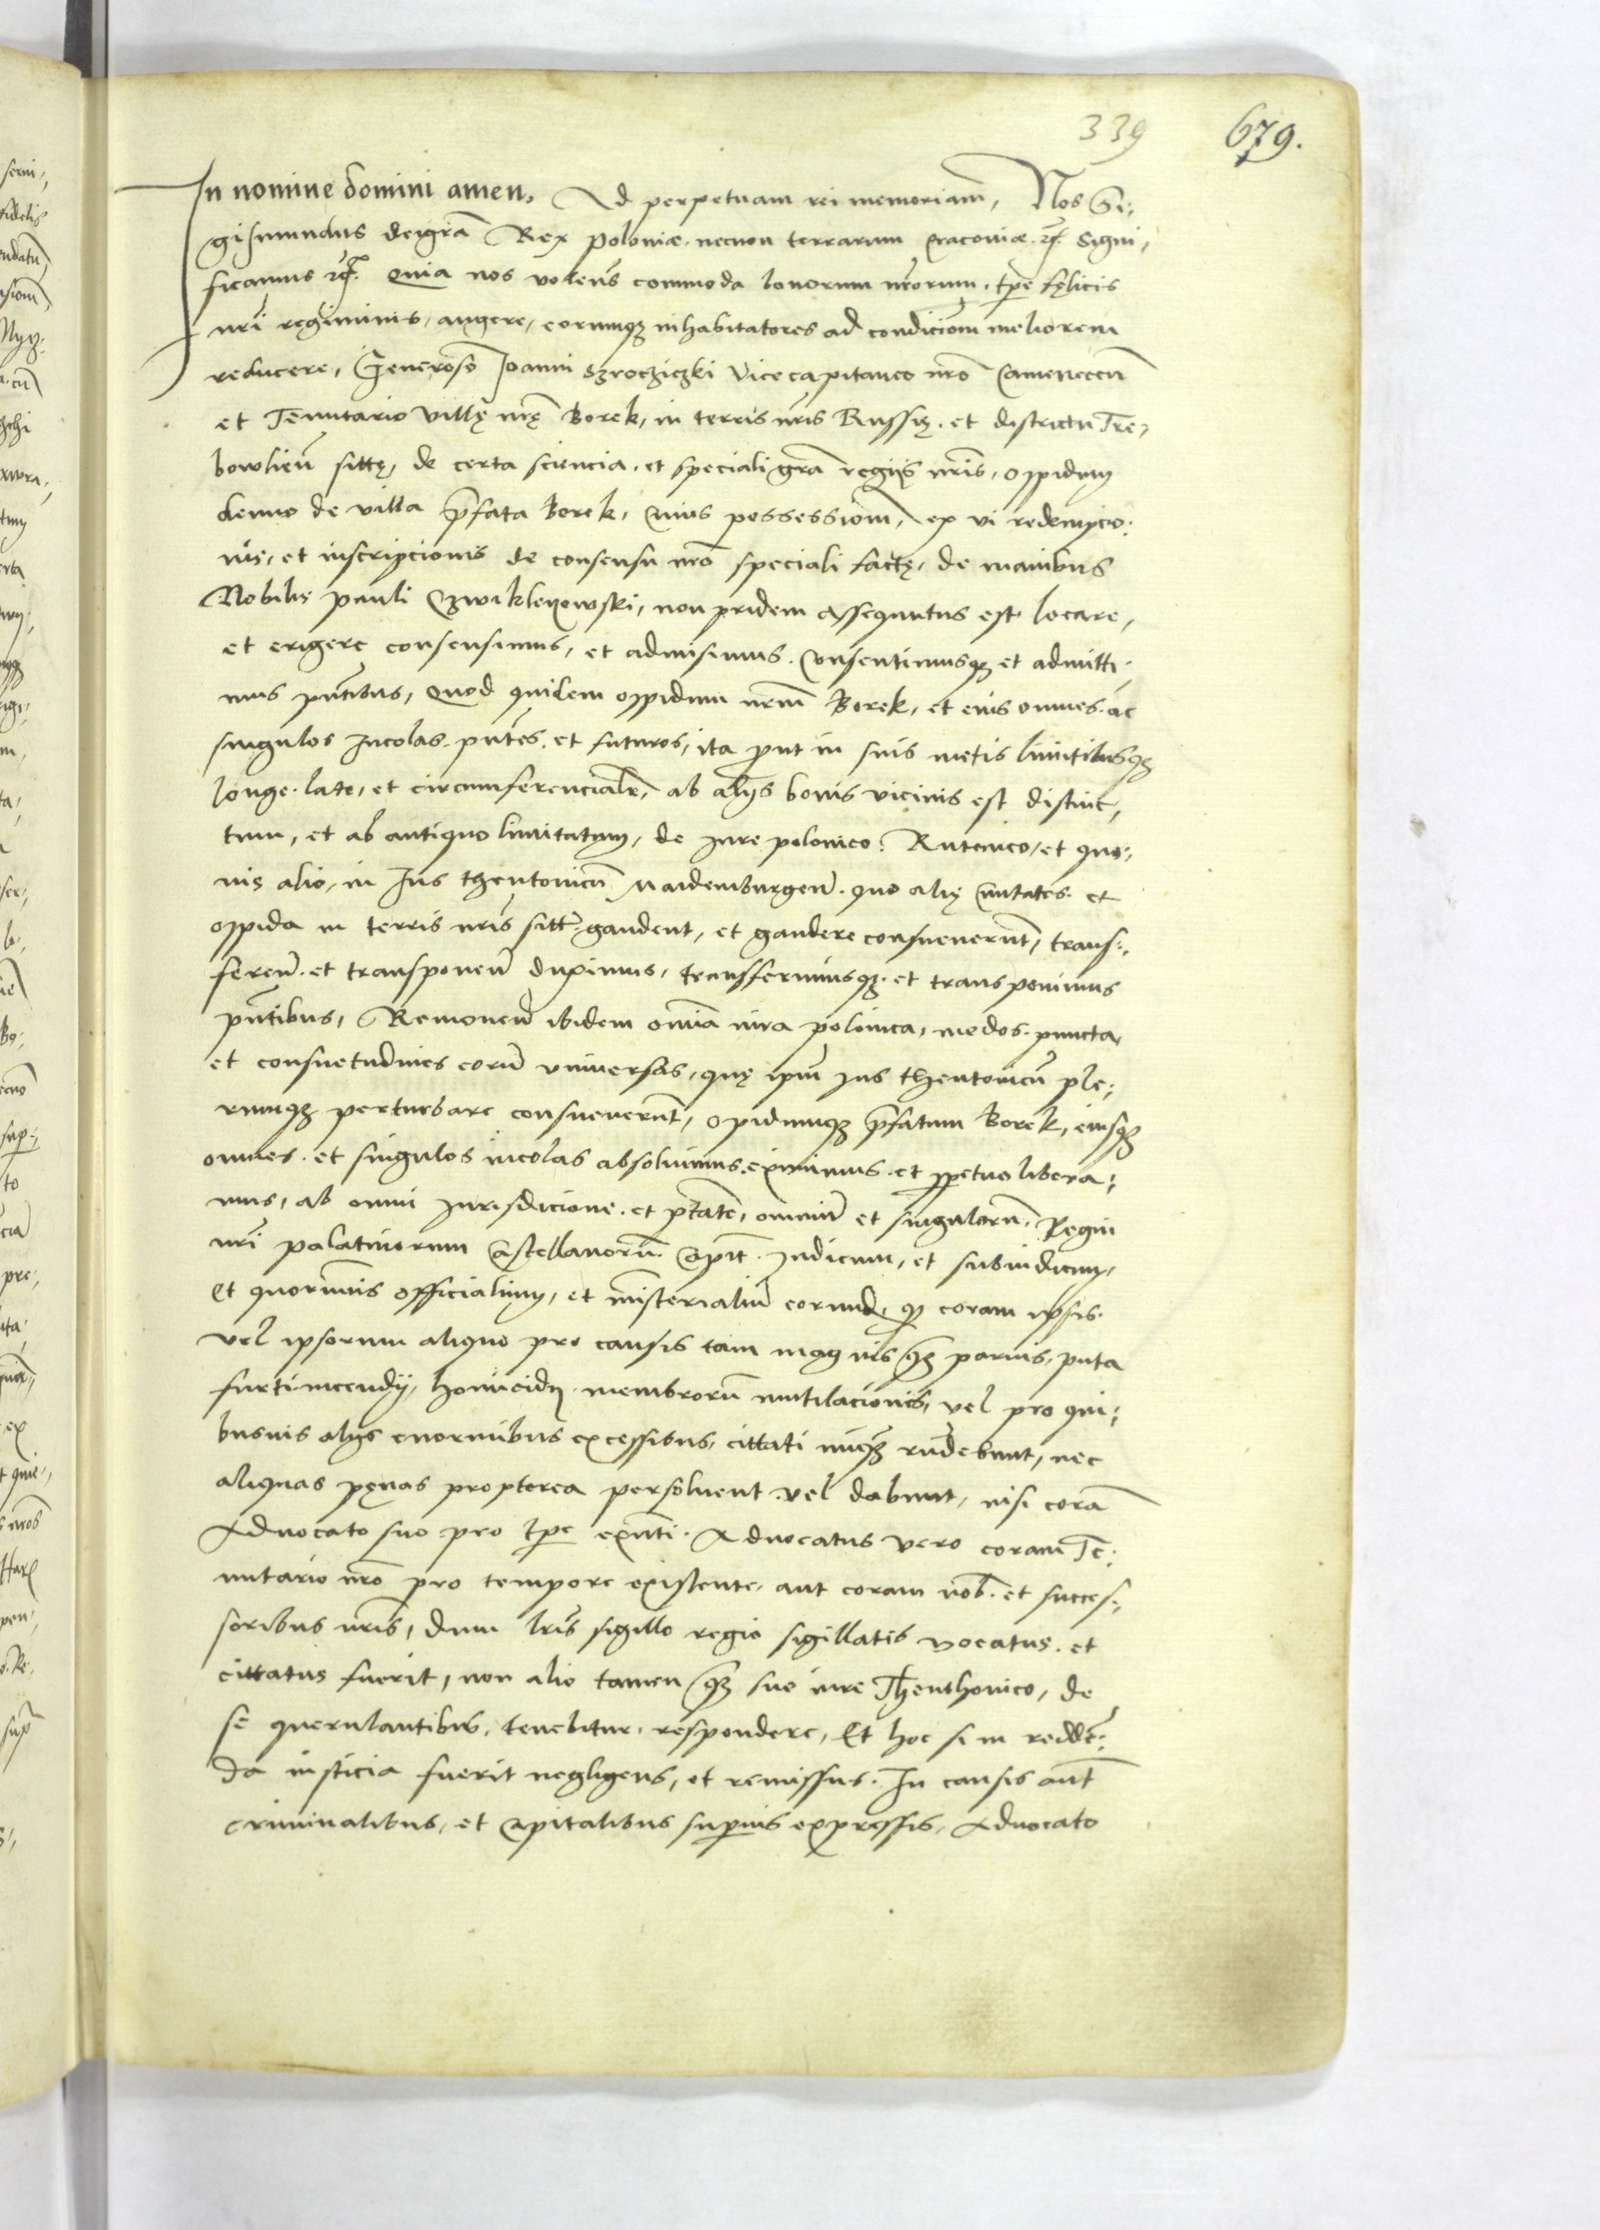 339 679.
In nomine domini amen, Ad perpetuam rei memoriam, Nos Si:
gismundus dei gra Rex Poloniæ. necnon terrarum Cracoviæ. zc. Signi,
ficamus zc. Quia nos volens commoda bonorum nrorum, tpe fęlicis
nri regiminis, augere, eorumqz inhabitatores ad condiciom meliorem
reducere, Generoso Joanni Szrocziczki Vicecapitaneo nro Camenecen
et Tenutario Villę nrę Borek, in terris nris Russię. et districtu Tre,
bowlien sittę, de certa sciencia. et speciali gra regijs nris, oppidum
denuo de villa pfata Borek, cuius possessiom, ex vi redempcio:
nis, et inscripcionis de consensu nro speciali factę, de manibus
Nobilis Pauli Czwiklenowski, non pridem assequutus est, locare,
et erigere consensimus, et admisimus. Consentimusqz et admitti:
mus pntibus, Quod quidem oppidum nrm Borek, et eius omnes. ac
singulos Incolas. pntes. et futuros, ita put in suis metis limitibusqz
longe. late, et circumferencialr, ab alys bonis vicinis est distinc,
tum, et ab antiquo limitatum, de iure polonico. Rutenico, et quo:
uis alio, in Ius theutonicu Maidemburgen. quo alię ciuitates. et
oppida in terris nris sitt. gaudent, et gaudere consueuerut, trans:
feren. et transponen duximus, transferimusqz. et transponimus
pntibus, Remouen ibidem omia iura polonica, modos. puncta,
et consuetudines eoru vniuersas, quę ipm Ius theutonicu ple:
rumqz perturbare consueuerut, opidumqz pfatum Borek, eiusqz
omnes. et singulos incolas absoluimus. eximimus. et ppetuo libera:
mus, ab omni Iurisdicione. et ptate, omniu et singuloru. Regni
nri Palatinorum Castellanoru. Capit. Iudicum, et subiudicum,
Et quorumuis officialium, et misterialiu eorund, qz coram ipsis.
vel ipsorum aliquo pro causis tam magnis qz paruis, puta
furti incendij, homicidy membroru mutilacionis, vel pro qui:
busuis alys enormibus excessibus, cittati miqz rndebunt, nec
aliquas pęnas propterea persoluent. vel dabunt, nisi cora
Aduocato suo pro tpe exnti. Aduocatus vero coram Te:
nutario nro pro tempore existente, aut coram nob. et succes:
soribus nris, dum lris sigillo regio sigillatis vocatus. et
cittatus fuerit, non alio tamen qz suo iure Theuthonico, de
se querulantibus, tenebitur, respondere, Et hoc si in redde:
da iusticia fuerit negligens, et remissus. In causis aut
criminalibus, et capitalibus supius expressis, Aduocato